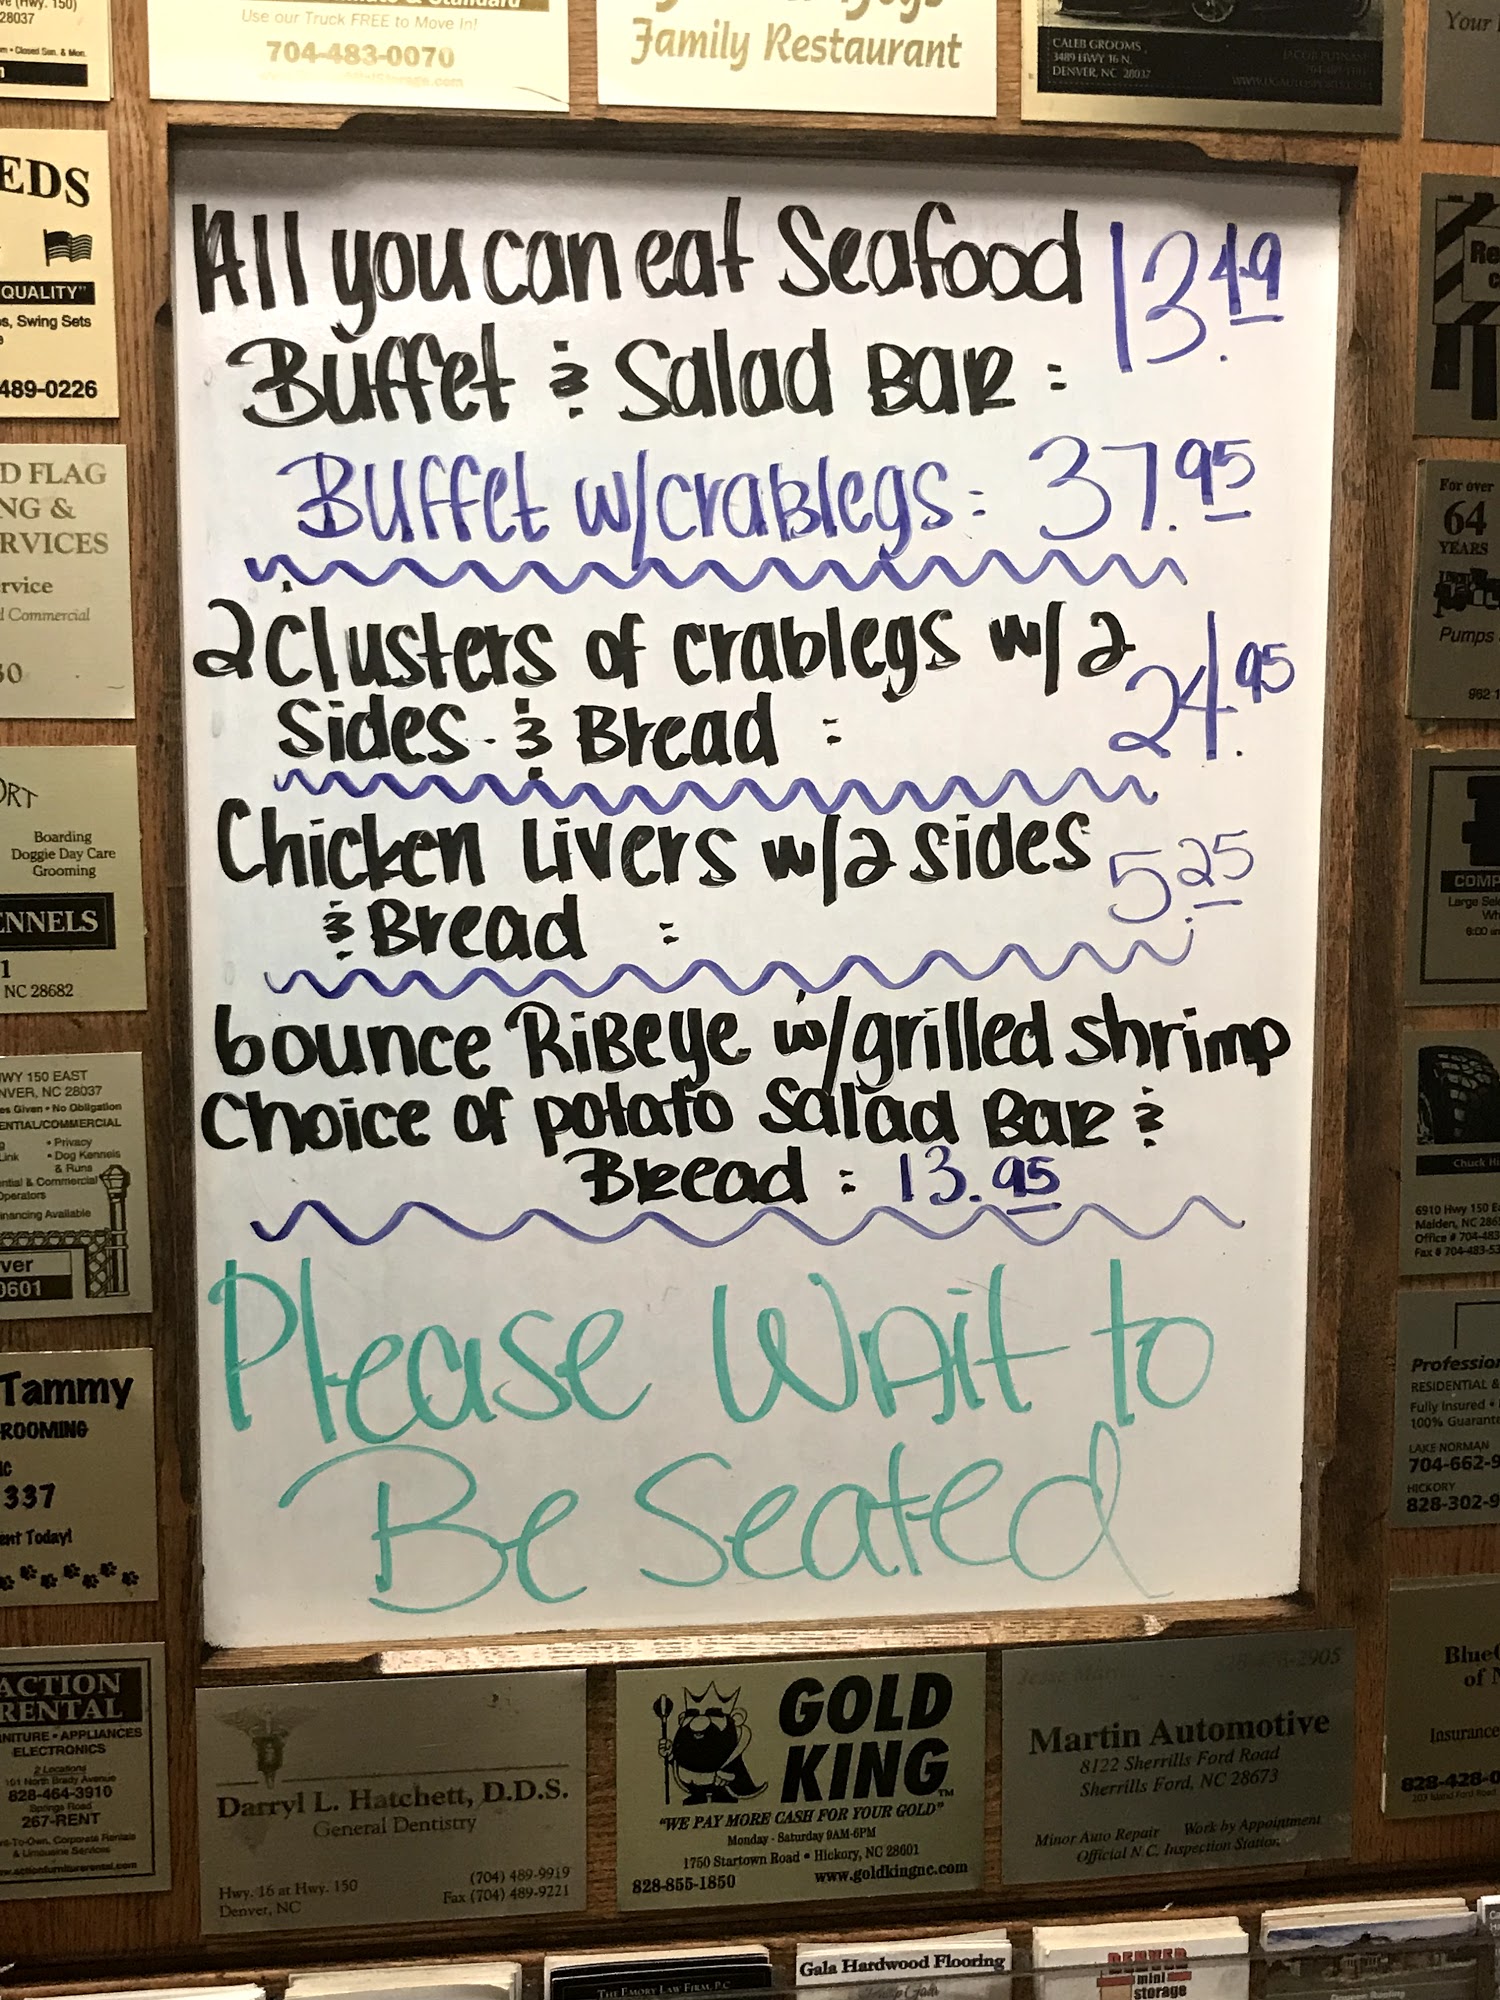 Use our Truck FREE to Move In!
704-483-0070
Family Restaurant
CALEB GROOMS
3489 HWY 16 N.
DENVER, NC 28037
All you can eat Seafood 13.49
Buffet & Salad Bar :
Buffet w/crablegs: 37.95
2 Clusters of crablegs w/2
Sides & Bread : 24.95
Chicken Livers w/2 sides 5.25
& Bread :
6ounce Ribeye w/grilled shrimp
Choice of potato Salad Bar &
Bread : 13.95
Please Wait to
Be Seated
EDS
QUALITY"
s, Swing Sets
489-0226
D FLAG
NG &
RVICES
rvice
d Commercial
ORT
Boarding
Doggie Day Care
Grooming
ENNELS
NC 28682
WY 150 EAST
NVER, NC 28037
es Given • No Obligation
ENTIAL/COMMERCIAL
• Privacy
Link • Dog Kennels
& Runs
ential & Commercial
Operators
inancing Available
ver
0601
Tammy
ROOMING
337
ent Today!
ACTION
RENTAL
NITURE • APPLIANCES
ELECTRONICS
2 Locations
828-464-3910
267-RENT
Darryl L. Hatchett, D.D.S.
General Dentistry
(704) 489-9919
Fax (704) 489-9221
Hwy. 16 at Hwy. 150
Denver, NC
GOLD
KING™
"WE PAY MORE CASH FOR YOUR GOLD"
Monday - Saturday 9AM-6PM
1750 Startown Road • Hickory, NC 28601
828-855-1850 www.goldkingnc.com
Martin Automotive
8122 Sherrills Ford Road
Sherrills Ford, NC 28673
Minor Auto Repair Work by Appointment
Official N.C. Inspection Station
For over
64
YEARS
Pumps
COMP
Chuck Hi
6910 Hwy 150 E
Maiden, NC 286
Office # 704-483
Fax # 704-483-53
Profession
RESIDENTIAL &
Fully Insured •
100% Guarante
LAKE NORMAN
704-662-9
HICKORY
828-302-9
Insurance
828-428-0
THE EMORY LAW FIRM, P.C.
Gala Hardwood Flooring
DENVER
mini
storage